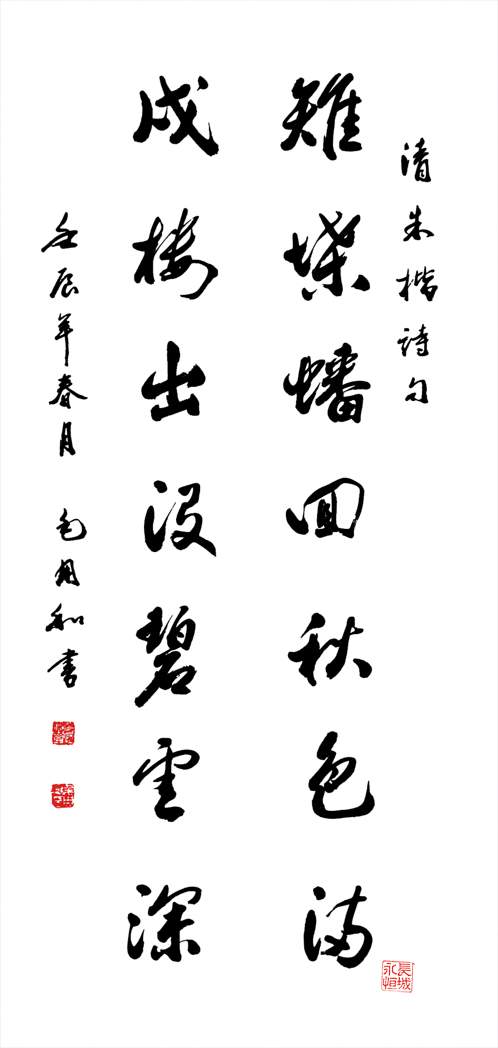 清朱楷詩句
雉堞蟠回秋色满
戍楼出没碧雲深
壬辰年春月 毛和書
長城永恒